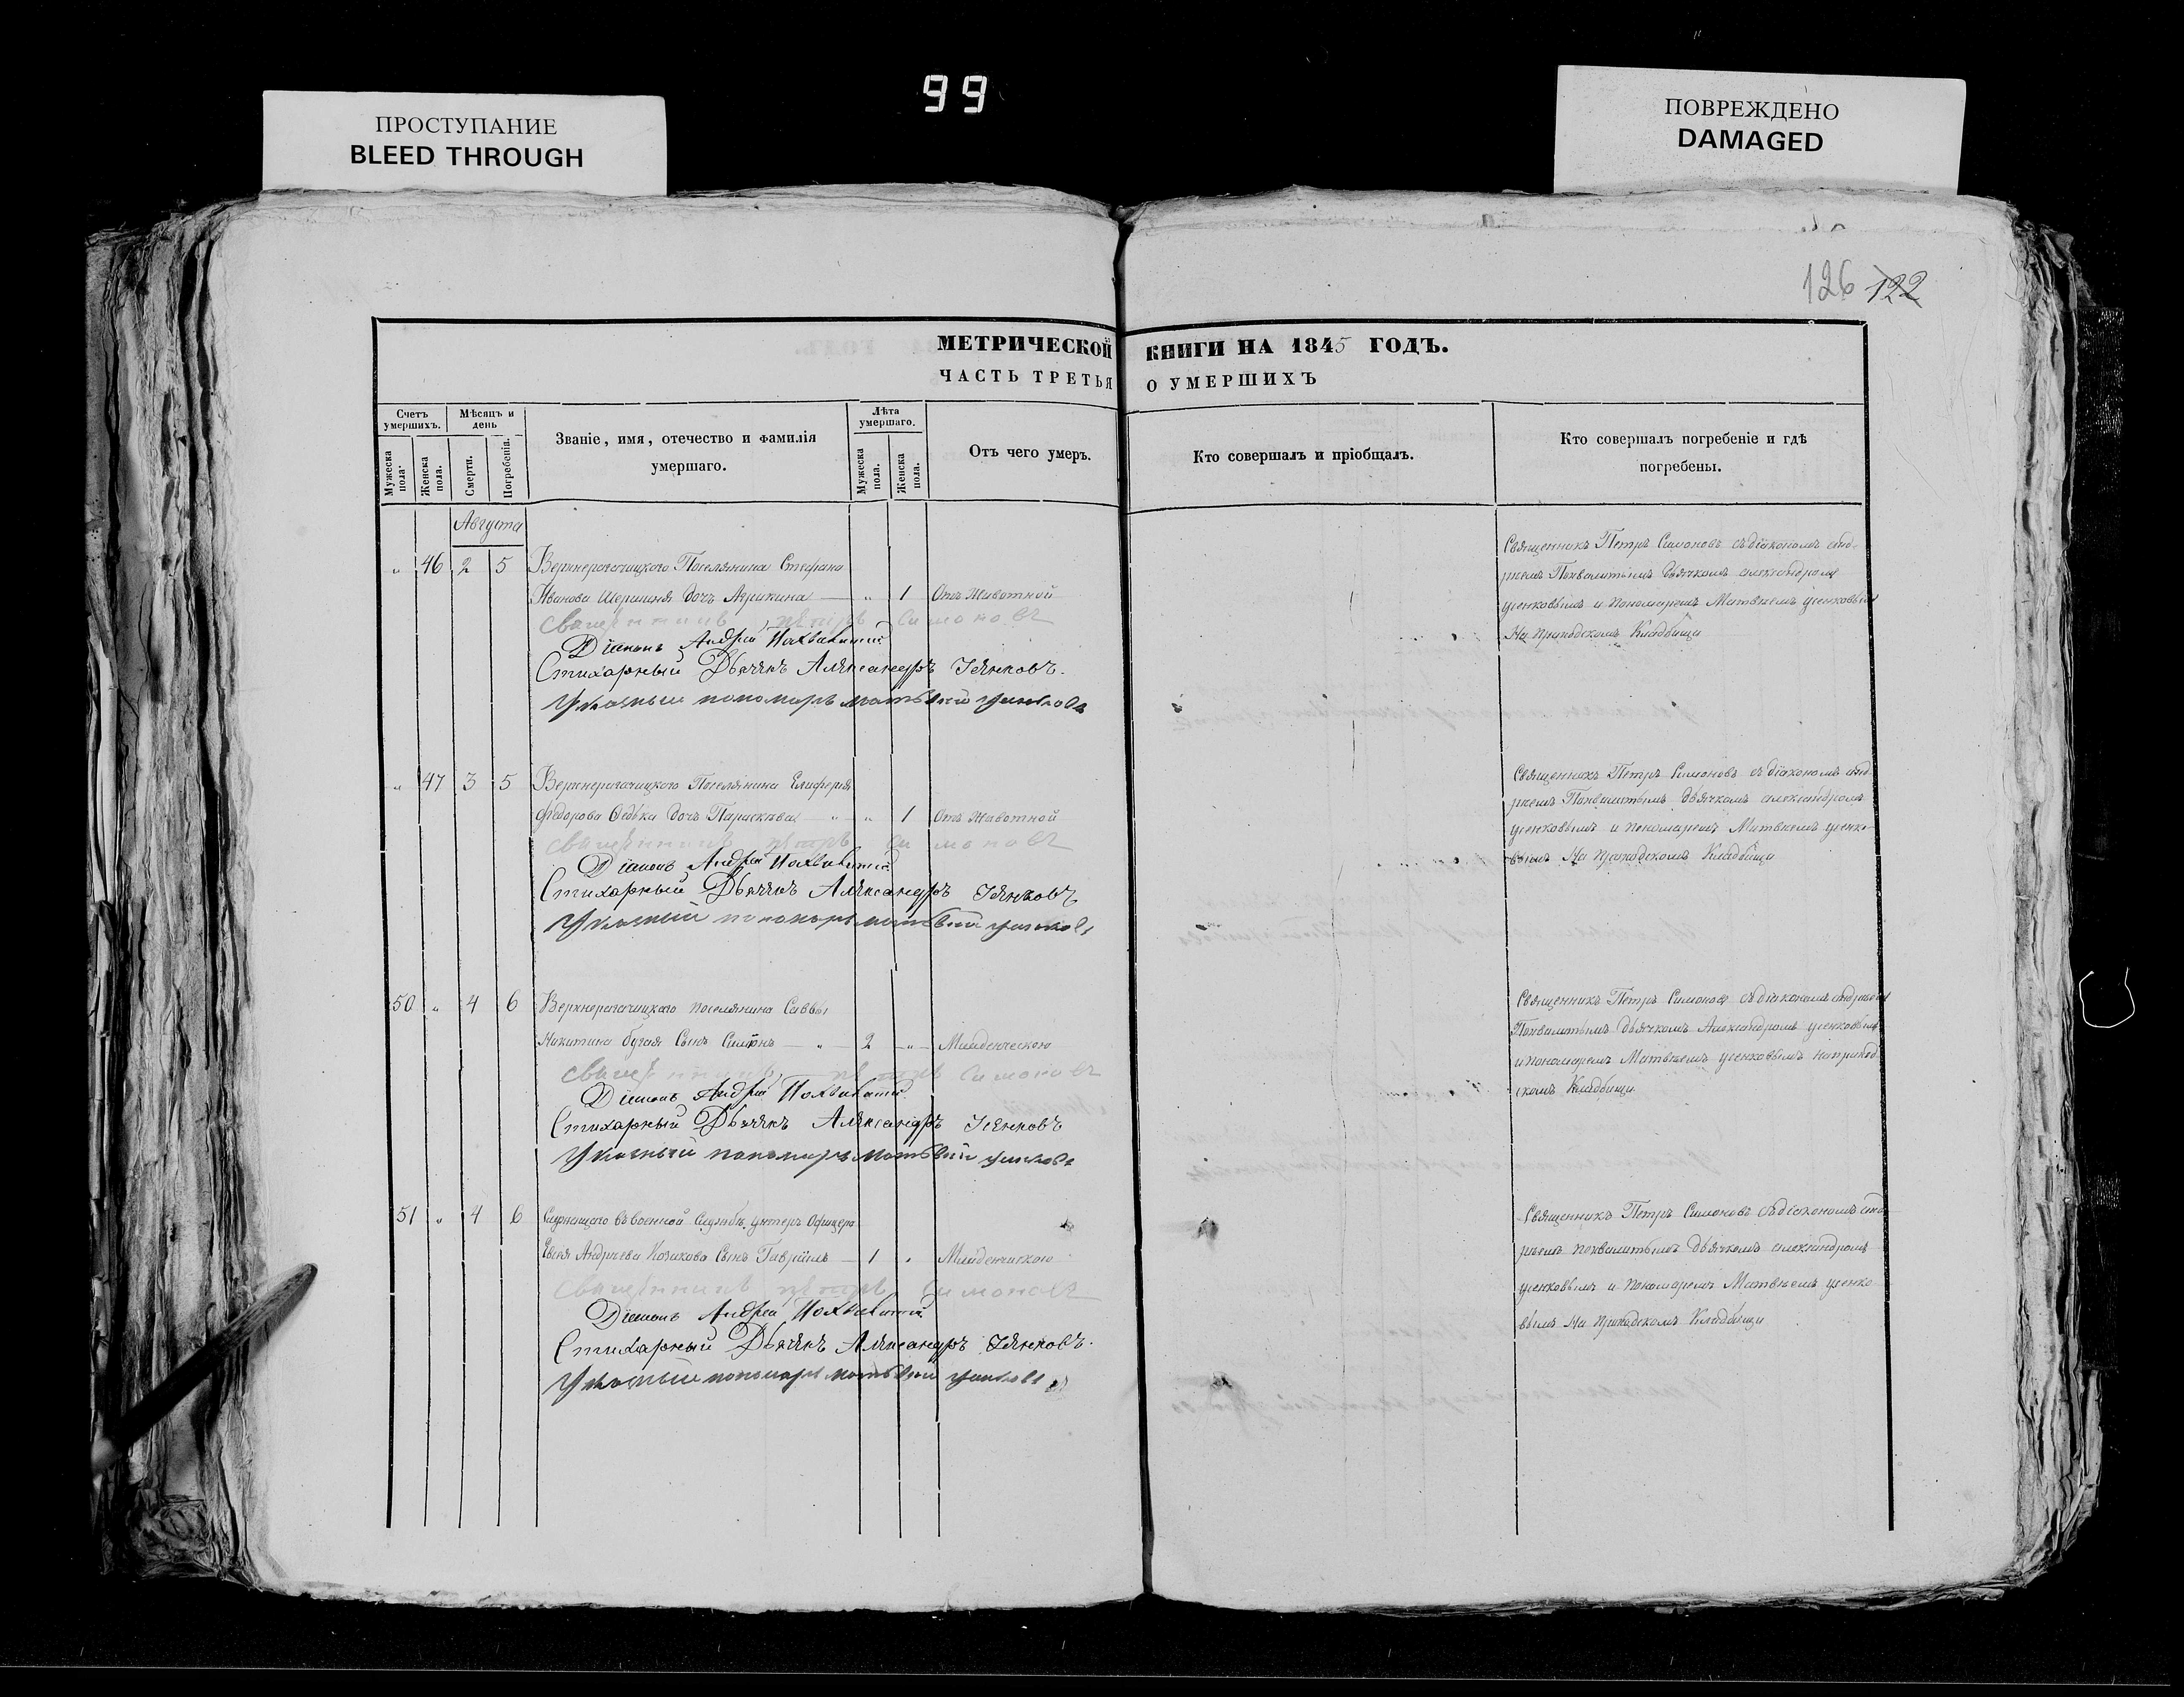 99
ПРОСТУПАНИЕ
BLEED THROUGH
ПОВРЕЖДЕНО
DAMAGED
126 122
МЕТРИЧЕСКОЙ КНИГИ НА 1845 ГОДЪ.
ЧАСТЬ ТРЕТЬЯ О УМЕРШИХЪ
Счетъ умершихъ.
Мужеска пола.
Женска пола.
Мѣсяцъ и день
Смерти.
Погребенія.
Званіе, имя, отечество и фамилія
умершаго.
Лѣта умершаго.
Мужеска пола.
Женска пола.
Отъ чего умеръ.
Кто совершалъ и пріобщалъ.
Кто совершалъ погребеніе и гдѣ
погребены.
Августа
" 46 2 5 Верхнерогачицкого Поселянина Стефана
Иванова дочь — " 1 Отъ Животной
Священникъ Петръ Симоновъ
Діаконъ Андрей Похвалитый
Стихарный Дьячекъ Александръ Усенковъ.
Указный пономарь Матвѣй Усенковъ
Священникъ Петръ Симоновъ съ діакономъ Анд-
реемъ Похвалитымъ дьячкомъ Александромъ
Усенковымъ и пономаремъ Матвѣемъ Усенковымъ
На приходскомъ Кладбищи
" 47 3 5 Верхнерогачицкого Поселянина Елиферія
Федорова дочь Параскева — " — " 1 Отъ Животной
Священникъ Петръ Симоновъ
Діаконъ Андрей Похвалитый
Стихарный Дьячекъ Александръ Усенковъ
Указный пономарь Матвѣй Усенковъ
Священникъ Петръ Симоновъ съ діакономъ Анд-
реемъ Похвалитымъ дьячкомъ Александромъ
Усенковымъ и пономаремъ Матвѣемъ Усенко-
вымъ На приходскомъ Кладбищи
50 " 4 6 Верхнерогачицкого поселянина Саввы
Никитина Бугая Сынъ Симеонъ — " — 2 — " — Младенческою
Священникъ Петръ Симоновъ
Діаконъ Андрей Похвалитый
Стихарный Дьячекъ Александръ Усенковъ
Указный пономарь Матвѣй Усенковъ
Священникъ Петръ Симоновъ съ діакономъ Андреемъ
Похвалитымъ дьячкомъ Александромъ Усенковымъ
и пономаремъ Матвѣемъ Усенковымъ на приход-
скомъ Кладбищи
51 " 4 6 Служащаго въ военной Службѣ унтеръ Офицера
Евсея Андреева Козакова Сынъ Гавріилъ — 1 " Младенческою
Священникъ Петръ Симоновъ
Діаконъ Андрей Похвалитый
Стихарный Дьячекъ Александръ Усенковъ.
Указный пономарь Матвѣй Усенковъ
Священникъ Петръ Симоновъ съ діакономъ Анд-
реемъ Похвалитымъ дьячкомъ Александромъ
Усенковымъ и пономаремъ Матвѣемъ Усенко-
вымъ На приходскомъ Кладбищи